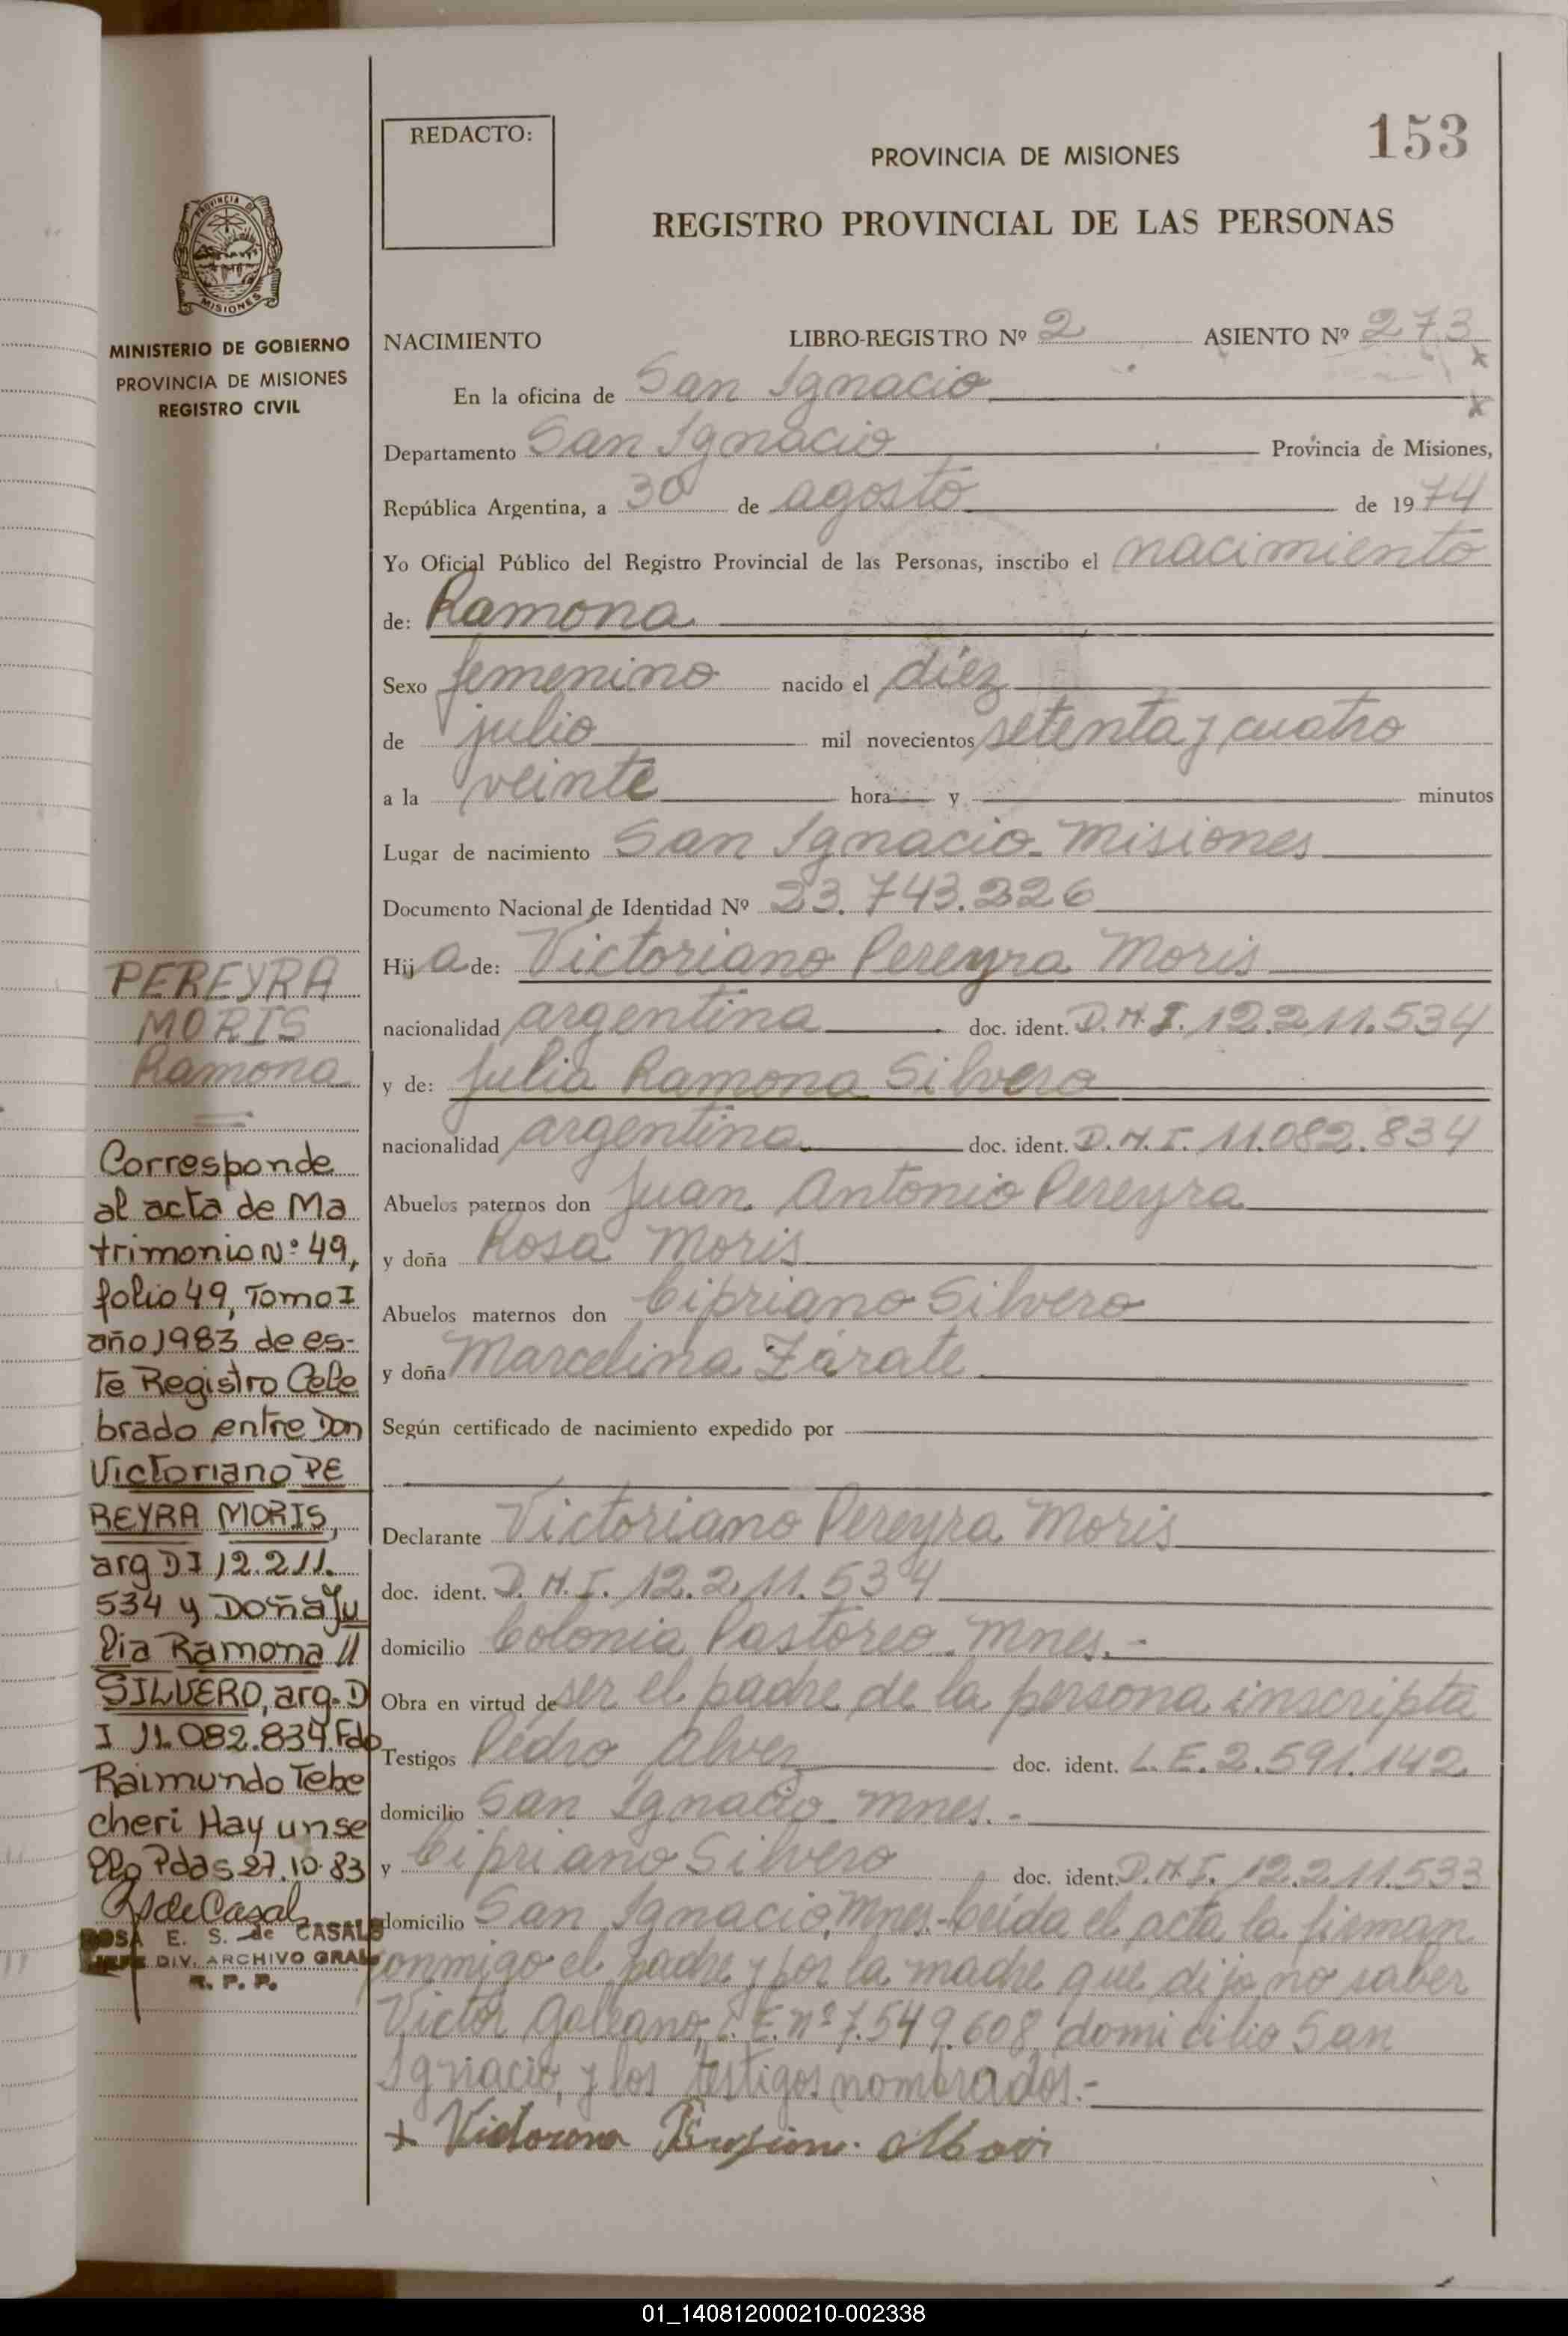 153
REDACTO:
PROVINCIA DE MISIONES
REGISTRO PROVINCIAL DE LAS PERSONAS
PROVINCIA DE
MISIONES
MINISTERIO DE GOBIERNO
PROVINCIA DE MISIONES
REGISTRO CIVIL
NACIMIENTO LIBRO-REGISTRO Nº 2 ASIENTO Nº 273
En la oficina de San Ignacio
Departamento San Ignacio Provincia de Misiones,
República Argentina, a 30 de agosto de 1974
Yo Oficial Público del Registro Provincial de las Personas, inscribo el nacimiento
de: Ramona
Sexo femenino nacido el diez
de julio mil novecientos setenta y cuatro
a la veinte hora y minutos
Lugar de nacimiento San Ignacio - Misiones
Documento Nacional de Identidad Nº 23.743.226
Hija de: Victoriano Pereyra Moris
nacionalidad argentina doc. ident. D.N.I. 12.211.534
y de: Julia Ramona Silvero
nacionalidad argentina doc. ident. D.N.I. 11.082.834
Abuelos paternos don Juan Antonio Pereyra
y doña Rosa Moris
Abuelos maternos don Cipriano Silvero
y doña Marcelina Zárate
Según certificado de nacimiento expedido por
Declarante Victoriano Pereyra Moris
doc. ident. D.N.I. 12.211.534
domicilio Colonia Pastoreo. Mnes.-
Obra en virtud de ser el padre de la persona inscripta
Testigos Pedro Alvez doc. ident. L.E. 2.591.142
domicilio San Ignacio Mnes.-
y Cipriano Silvero doc. ident. D.N.I. 12.211.533
domicilio San Ignacio, Mnes.- Leída el acta la firman
conmigo el padre y por la madre que dijo no saber
Victor Galeano, L.E. nº 7.549.608, domicilio San
Ignacio, y los testigos nombrados.-
PEREYRA
MORIS
Ramona
Corresponde
al acta de Ma
trimonio Nº 49,
folio 49, Tomo I
año 1983 de es-
te Registro Cele
brado entre Don
Victoriano PE
REYRA MORIS,
arg DI 12.211.
534 y Doña Ju
lia Ramona //
SILVERO, arg. D
I 11.082.834. Fdo
Raimundo Tebe
cheri Hay un se
llo Pdas 27.10.83
R S de Casal
ROSA E. S. de CASALS
JEFE DIV. ARCHIVO GRAL
R. P. P.
01_140812000210-002338